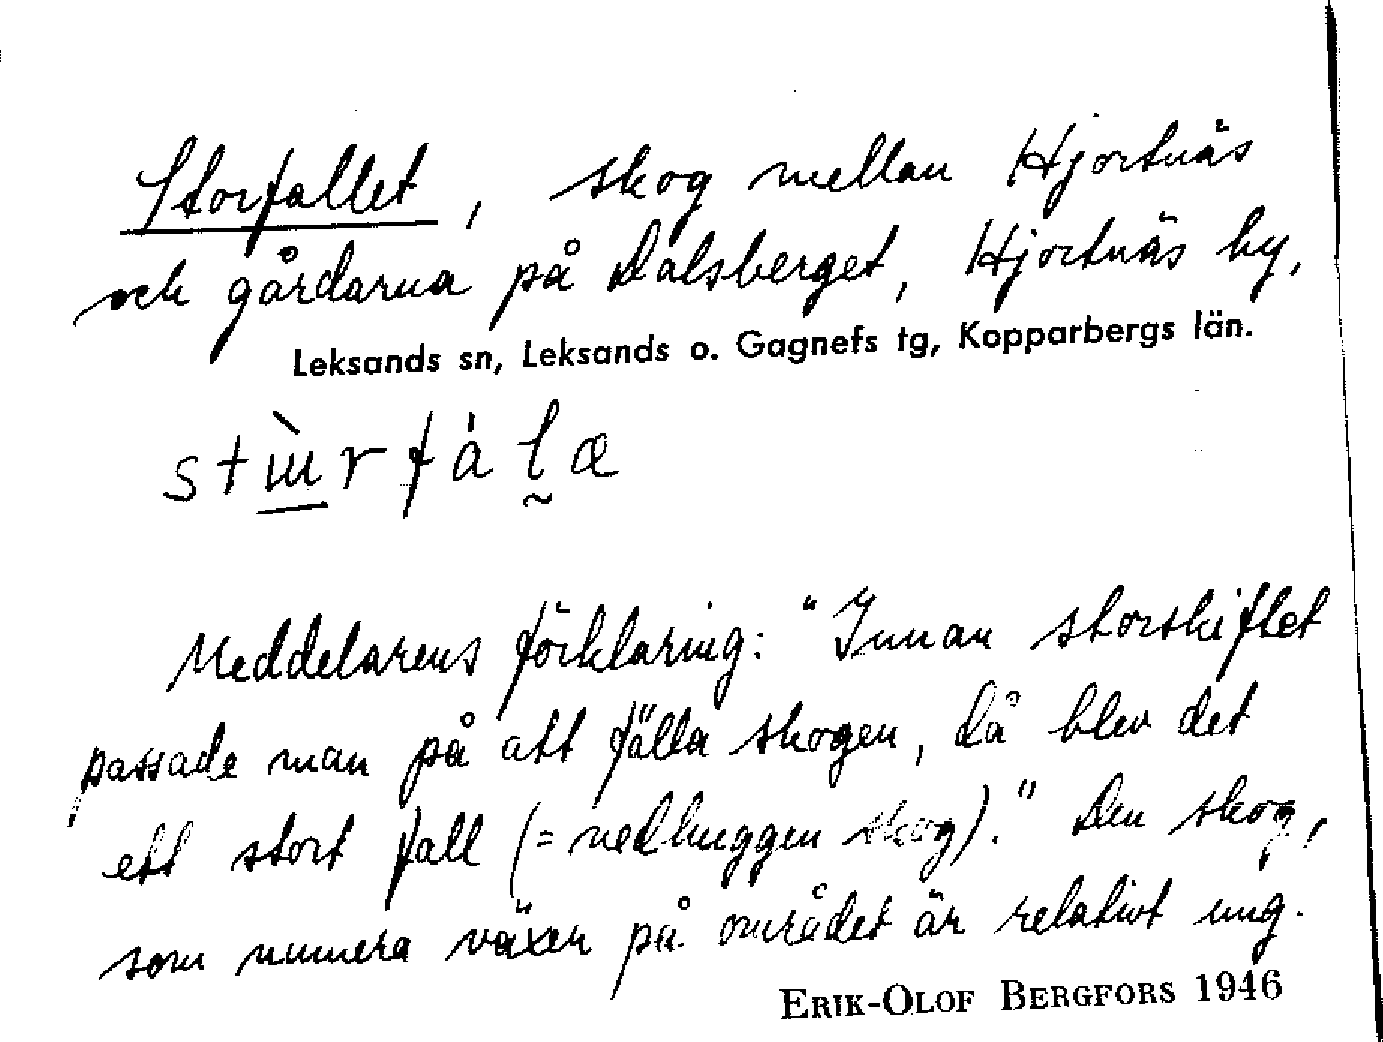 Storfallet, skog mellan Hjortnäs
och gårdarna på Dalsberget, Hjortnäs by,
Leksands sn, Leksands o. Gagnefs tg, Kopparbergs län.
stɯ̀rfàl̰æ
Meddelarens förklaring: "Innan storskiftet
passade man på att fälla skogen, då blev det
ett stort fall (= nedhuggen skog)." Den skog,
som numera växer på området är relativt ung.
ERIK-OLOF BERGFORS 1946